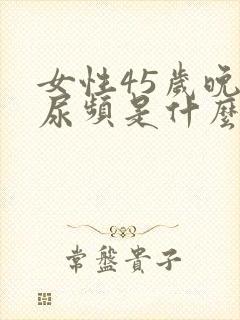 女性45歲晚
尿頻是什麼
常盤貴子